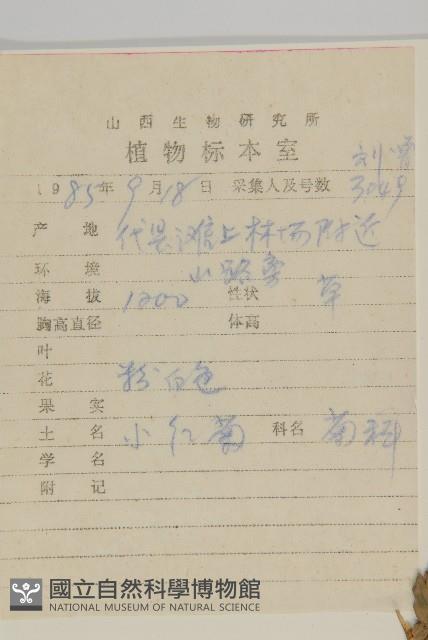 山西生物研究所
植物标本室
1985年9月18日 采集人及号数 刘 3049
产地 代县滩上林场附近
环境 山路旁
海拔 1200 性状 草
胸高直径 体高
叶
花 粉白色
果实
土名 小红菊 科名 菊科
学名
附记
國立自然科學博物館
NATIONAL MUSEUM OF NATURAL SCIENCE